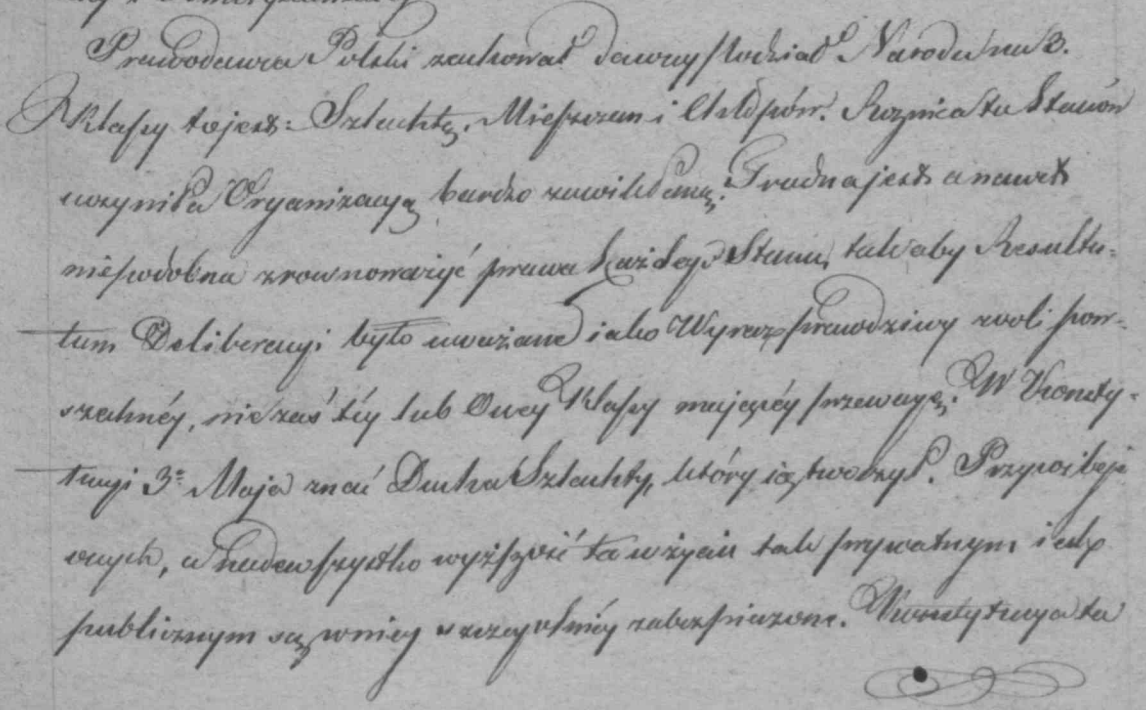 Prawodawca Polski zachował dawny Podział Narodu na 3.
Klassy to jest: Szlachtę, Mieszczan i Chłopów. Roznica ta Stanów
uczyniła Organizacyą bardzo zawikłaną. Trudna jest a nawet
niepodobna zrownoważyć prawa każdego Stanu, tak aby Resulta-
tum Deliberacyi było uważane jako Wyraz prawdziwy woli pow-
szechnéy, nie zaś téy lub Owey Klassy maiącéy przewagę. W Konsty-
tucyi 3º Maja znać Ducha Szlachty, który ią tworzył.
onych, a nadewszystko wyższość ta w życiu tak prywatnym iako
publicznym są w niey szczegulniéy zabezpieczone. Konstytucya ta